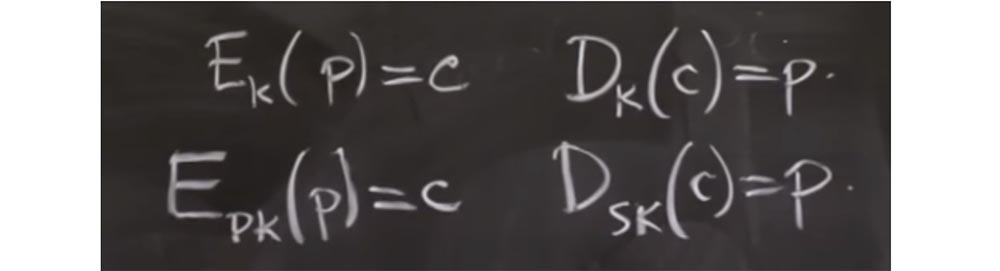 E_K(p)=c D_K(c)=p.
E_PK(p)=c D_SK(c)=p.